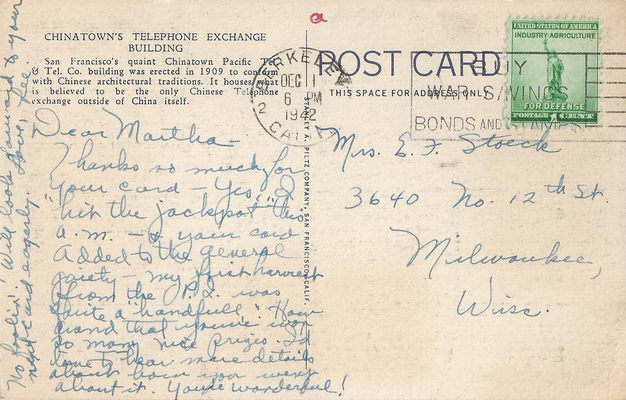 a
CHINATOWN'S TELEPHONE EXCHANGE
BUILDING
San Francisco's quaint Chinatown Pacific Tel.
& Tel. Co. building was erected in 1909 to conform
with Chinese architectural traditions. It houses what
is believed to be the only Chinese Telephone
exchange outside of China itself.
BERKELEY
DEC 1
6 PM
1942
2
CALIF.
POST CARD
THIS SPACE FOR ADDRESS ONLY
BUY
WAR SAVINGS
BONDS AND STAMPS
UNITED STATES OF AMERICA
INDUSTRY AGRICULTURE
FOR DEFENSE
POSTAGE 1 CENT
STANLEY A. PILTZ COMPANY, SAN FRANCISCO, CALIF.
Dear Martha -
Thanks so much for
your card - Yes, I
"hit the jackpot" this
a.m. - & your card
added to the general
gaiety - my first harvest
from the P.S. was
quite a handfull. How
grand that you've won
so many nice prizes. I'd
love to hear more details
about how you went
about it. You're wonderful!
No foolin'! Will look forward to your
next card eagerly. Love,
Mrs. E. F. Stoeck
3640 No. 12th St.
Milwaukee,
Wisc.